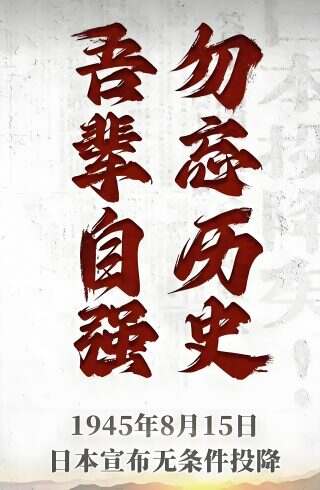 勿忘历史
吾辈自强
日本投降矣！
1945年8月15日
日本宣布无条件投降